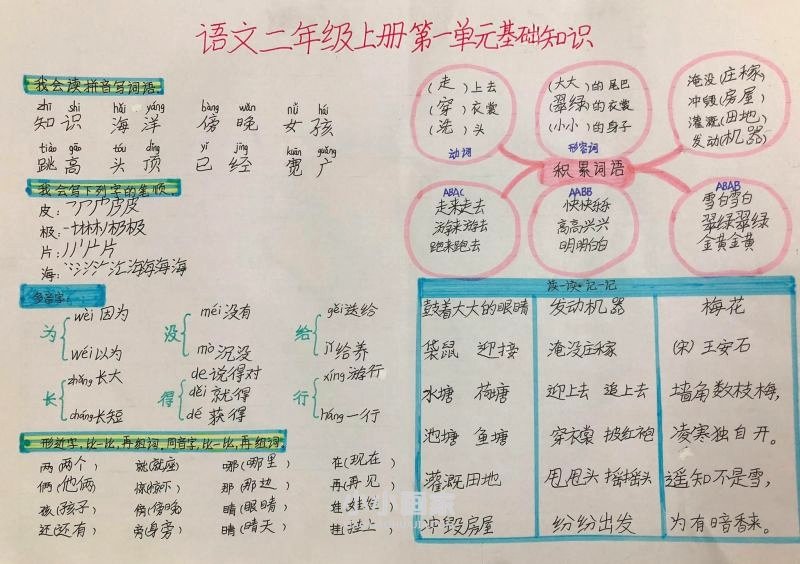 语文二年级上册第一单元基础知识
我会读拼音写词语
zhī shi hǎi yáng bàng wǎn nǚ hái
知识 海洋 傍晚 女孩
tiào gāo tóu dǐng yǐ jīng kuān guǎng
跳高 头顶 已经 宽广
我会写下列字的笔顺
皮:
极:
片:
海:
多音字:
为 wèi 因为
wéi 以为
没 méi 没有
mò 沉没
给 gěi 送给
jǐ 给养
长 zhǎng 长大
cháng 长短
得 de 说得对
děi 就得
dé 获得
行 xíng 游行
háng 一行
形近字,比一比,再组词.同音字,比一比,再组词.
两(两个) 就(就座) 哪(哪里) 在(现在)
俩(他俩) 那(那边) 再(再见)
孩(孩子) 傍(傍晚) 睛(眼睛) 娃(娃娃)
还(还有) 旁(身旁) 晴(晴天) 挂(挂上)
(走)上去
(穿)衣裳
(洗)头
动词
(大大)的尾巴
(翠绿)的衣裳
(小小)的身子
形容词
淹没(庄稼)
冲毁(房屋)
灌溉(田地)
发动(机器)
积累词语
ABAC
走来走去
游来游去
跑来跑去
AABB
快快乐乐
高高兴兴
明明白白
ABAB
雪白雪白
翠绿翠绿
金黄金黄
读一读·记一记
鼓着大大的眼睛 发动机器 梅花
袋鼠 迎接 淹没庄稼 (宋) 王安石
水塘 荷塘 迎上去 追上去 墙角数枝梅,
池塘 鱼塘 穿衣裳 披红袍 凌寒独自开。
灌溉田地 甩甩头 摇摇头 遥知不是雪,
冲毁房屋 纷纷出发 为有暗香来。